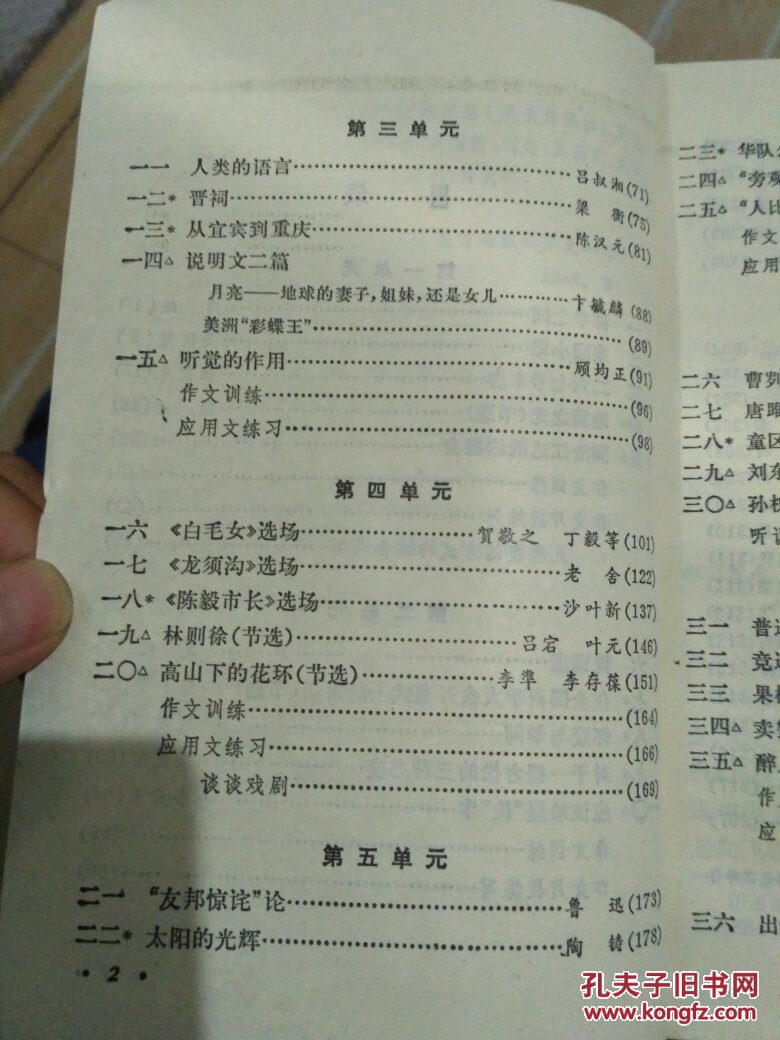 第三单元
一一 人类的语言……吕叔湘(71)
一二* 晋祠……梁 衡(75)
一三* 从宜宾到重庆……陈汉元(81)
一四△ 说明文二篇
月亮——地球的妻子,姐妹,还是女儿……卞毓麟(88)
美洲“彩蝶王”……(89)
一五△ 听觉的作用……顾均正(91)
作文训练……(96)
应用文练习……(98)
第四单元
一六 《白毛女》选场……贺敬之 丁毅等(101)
一七 《龙须沟》选场……老 舍(122)
一八* 《陈毅市长》选场……沙叶新(137)
一九△ 林则徐(节选)……吕宕 叶元(146)
二〇△ 高山下的花环(节选)……李準 李存葆(151)
作文训练……(164)
应用文练习……(166)
谈谈戏剧……(169)
第五单元
二一 “友邦惊诧”论……鲁 迅(173)
二二* 太阳的光辉……陶 铸(178)
·2·
二三* 华队
二四△ “旁观
二五△ “人比
作文
应用
二六 曹刿
二七 唐雎
二八* 童区
二九△ 刘东
三〇△ 孙权
听说
三一 普通
三二 竞选
三三 果树
三四△ 卖
三五△ 醉
作
应
三六 出
孔夫子旧书网
www.kongfz.com